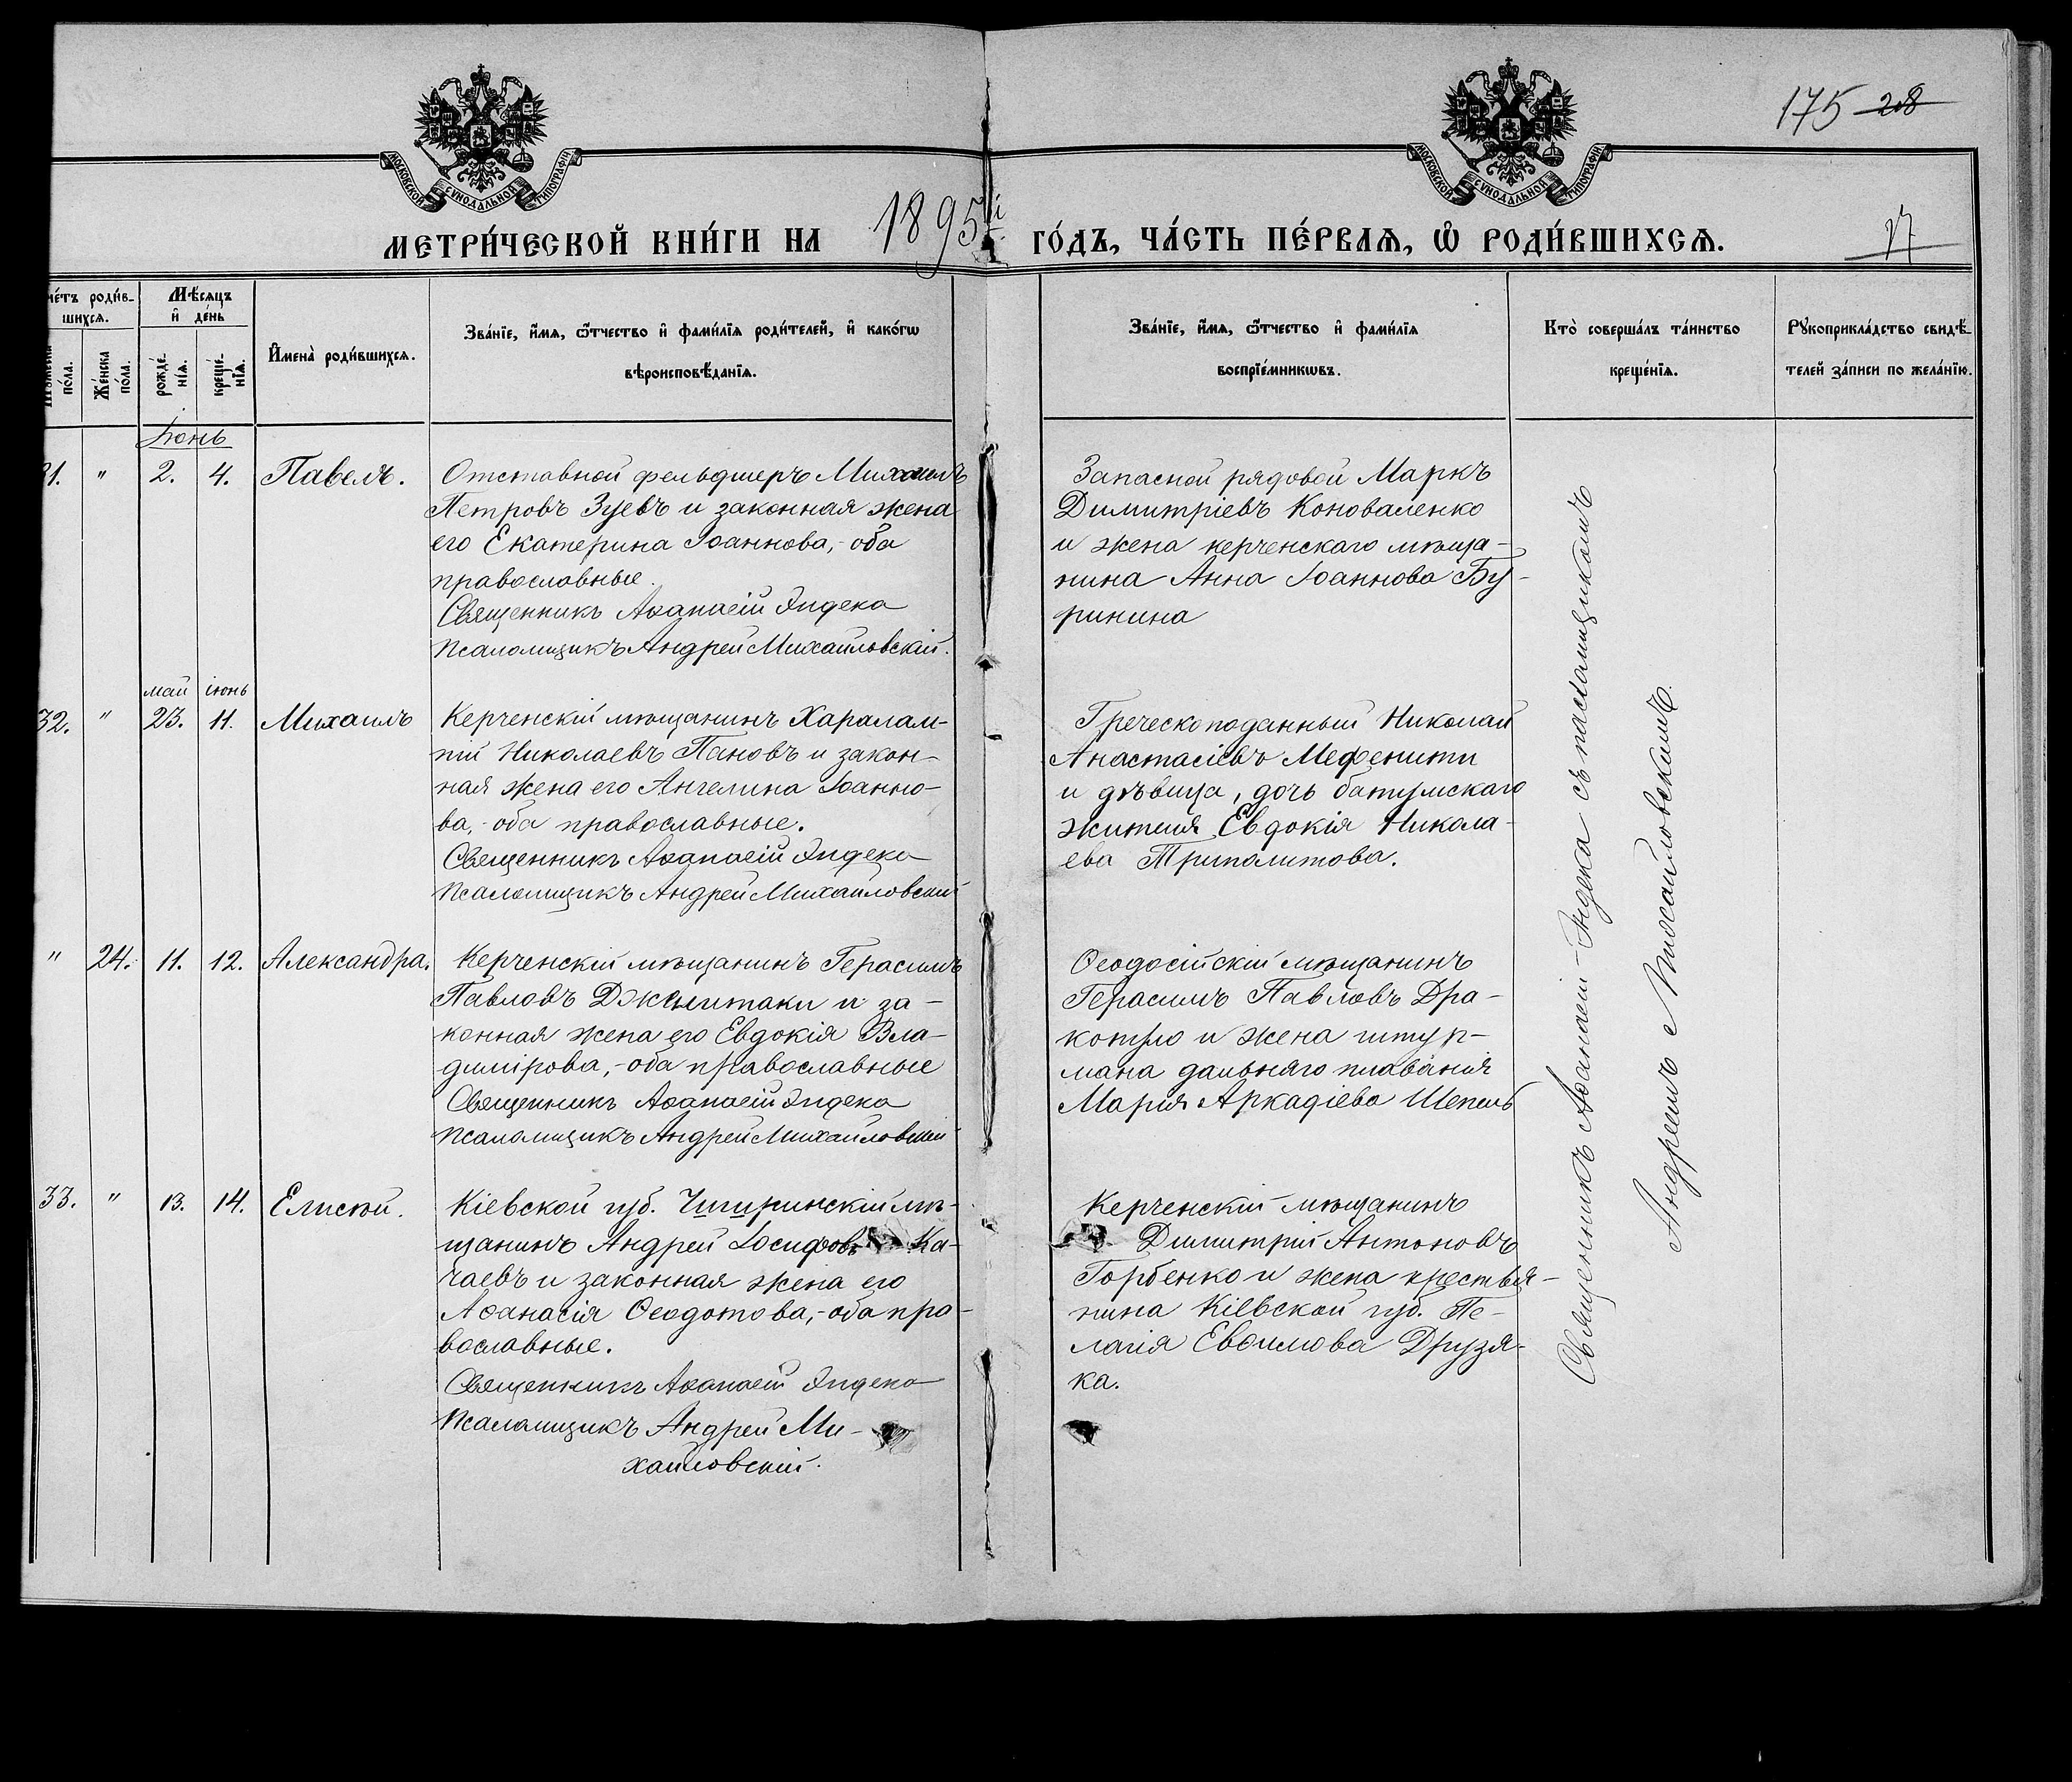 175 208
МОСКОВСКОЙ СѴНОДАЛЬНОЙ ТИПОГРАФІИ
МОСКОВСКОЙ СѴНОДАЛЬНОЙ ТИПОГРАФІИ
МЕТРИ́ЧЕСКОЙ КНИ́ГИ НА 1895й ГО́ДЪ, ЧА́СТЬ ПЕ́РВАѦ, Ѡ҆ РОДИ́ВШИХСѦ.
27
че́тъ роди́в-
шихсѧ.
Мѣ́сѧцъ
и҆ де́нь
И҆мена̀ роди́вшихсѧ.
Зва́нїе, и҆́мѧ, ѻ҆́тчество и҆ фами́лїѧ роди́телей, и҆ како́гѡ
вѣроисповѣ́данїѧ.
Зва́нїе, и҆́мѧ, ѻ҆́тчество и҆ фами́лїѧ
воспрїе́мникѡвъ.
Кто̀ соверша́лъ та́инство
креще́нїѧ.
Рꙋкоприкла́дство свидѣ́-
телей за́писи по жела́нїю.
по́ла.
Же́нска
по́ла.
рожде́-
нїѧ.
креще́-
нїѧ.
Іюнь
31. " 2. 4. Павелъ.
Отставной фельдшеръ Михаилъ
Петровъ Зуевъ и законная жена
его Екатерина Іоаннова,- оба
православные.
Священникъ Аѳанасій Эндека
Псаломщикъ Андрей Михайловскій.
Запасной рядовой Маркъ
Димитріевъ Коноваленко
и жена керченскаго мѣща-
нина Анна Іоаннова Бу-
ринина
май іюнь
32. " 23. 11. Михаилъ
Керченскій мѣщанинъ Харалам-
пій Николаевъ Пановъ и закон-
ная жена его Ангелина Іоанно-
ва,- оба православные.
Священникъ Аѳанасій Эндека
Псаломщикъ Андрей Михайловскій
Греческоподанный Николай
Анастасіевъ Мефенити
и дѣвица, дочь батумскаго
жителя Евдокія Никола-
ева Триполитова.
" 24. 11. 12. Александра.
Керченскій мѣщанинъ Герасимъ
Павловъ Джелитаки и за-
конная жена его Евдокія Вла-
димірова,- оба православные
Священникъ Аѳанасій Эндека
Псаломщикъ Андрей Михайловскій
Ѳеодосійскій мѣщанинъ
Герасимъ Павловъ Дра-
котуло и жена штур-
мана дальняго плаванія
Марія Аркадіева Шепель
33. " 13. 14. Елисей.
Кіевской губ. Чигиринскій мѣ-
щанинъ Андрей Іосифовъ Ка-
чаевъ и законная жена его
Аѳанасія Ѳеодотова,- оба пра-
вославные.
Священникъ Аѳанасій Эндека
Псаломщикъ Андрей Ми-
хайловскій.
Керченскій мѣщанинъ
Димитрій Антоновъ
Горбенко и жена крестья-
нина Кіевской губ. Пе-
лагія Евѳимова Друзя-
ка.
Священникъ Аѳанасій Эндека съ псаломщикомъ
Андреемъ Михайловскимъ.